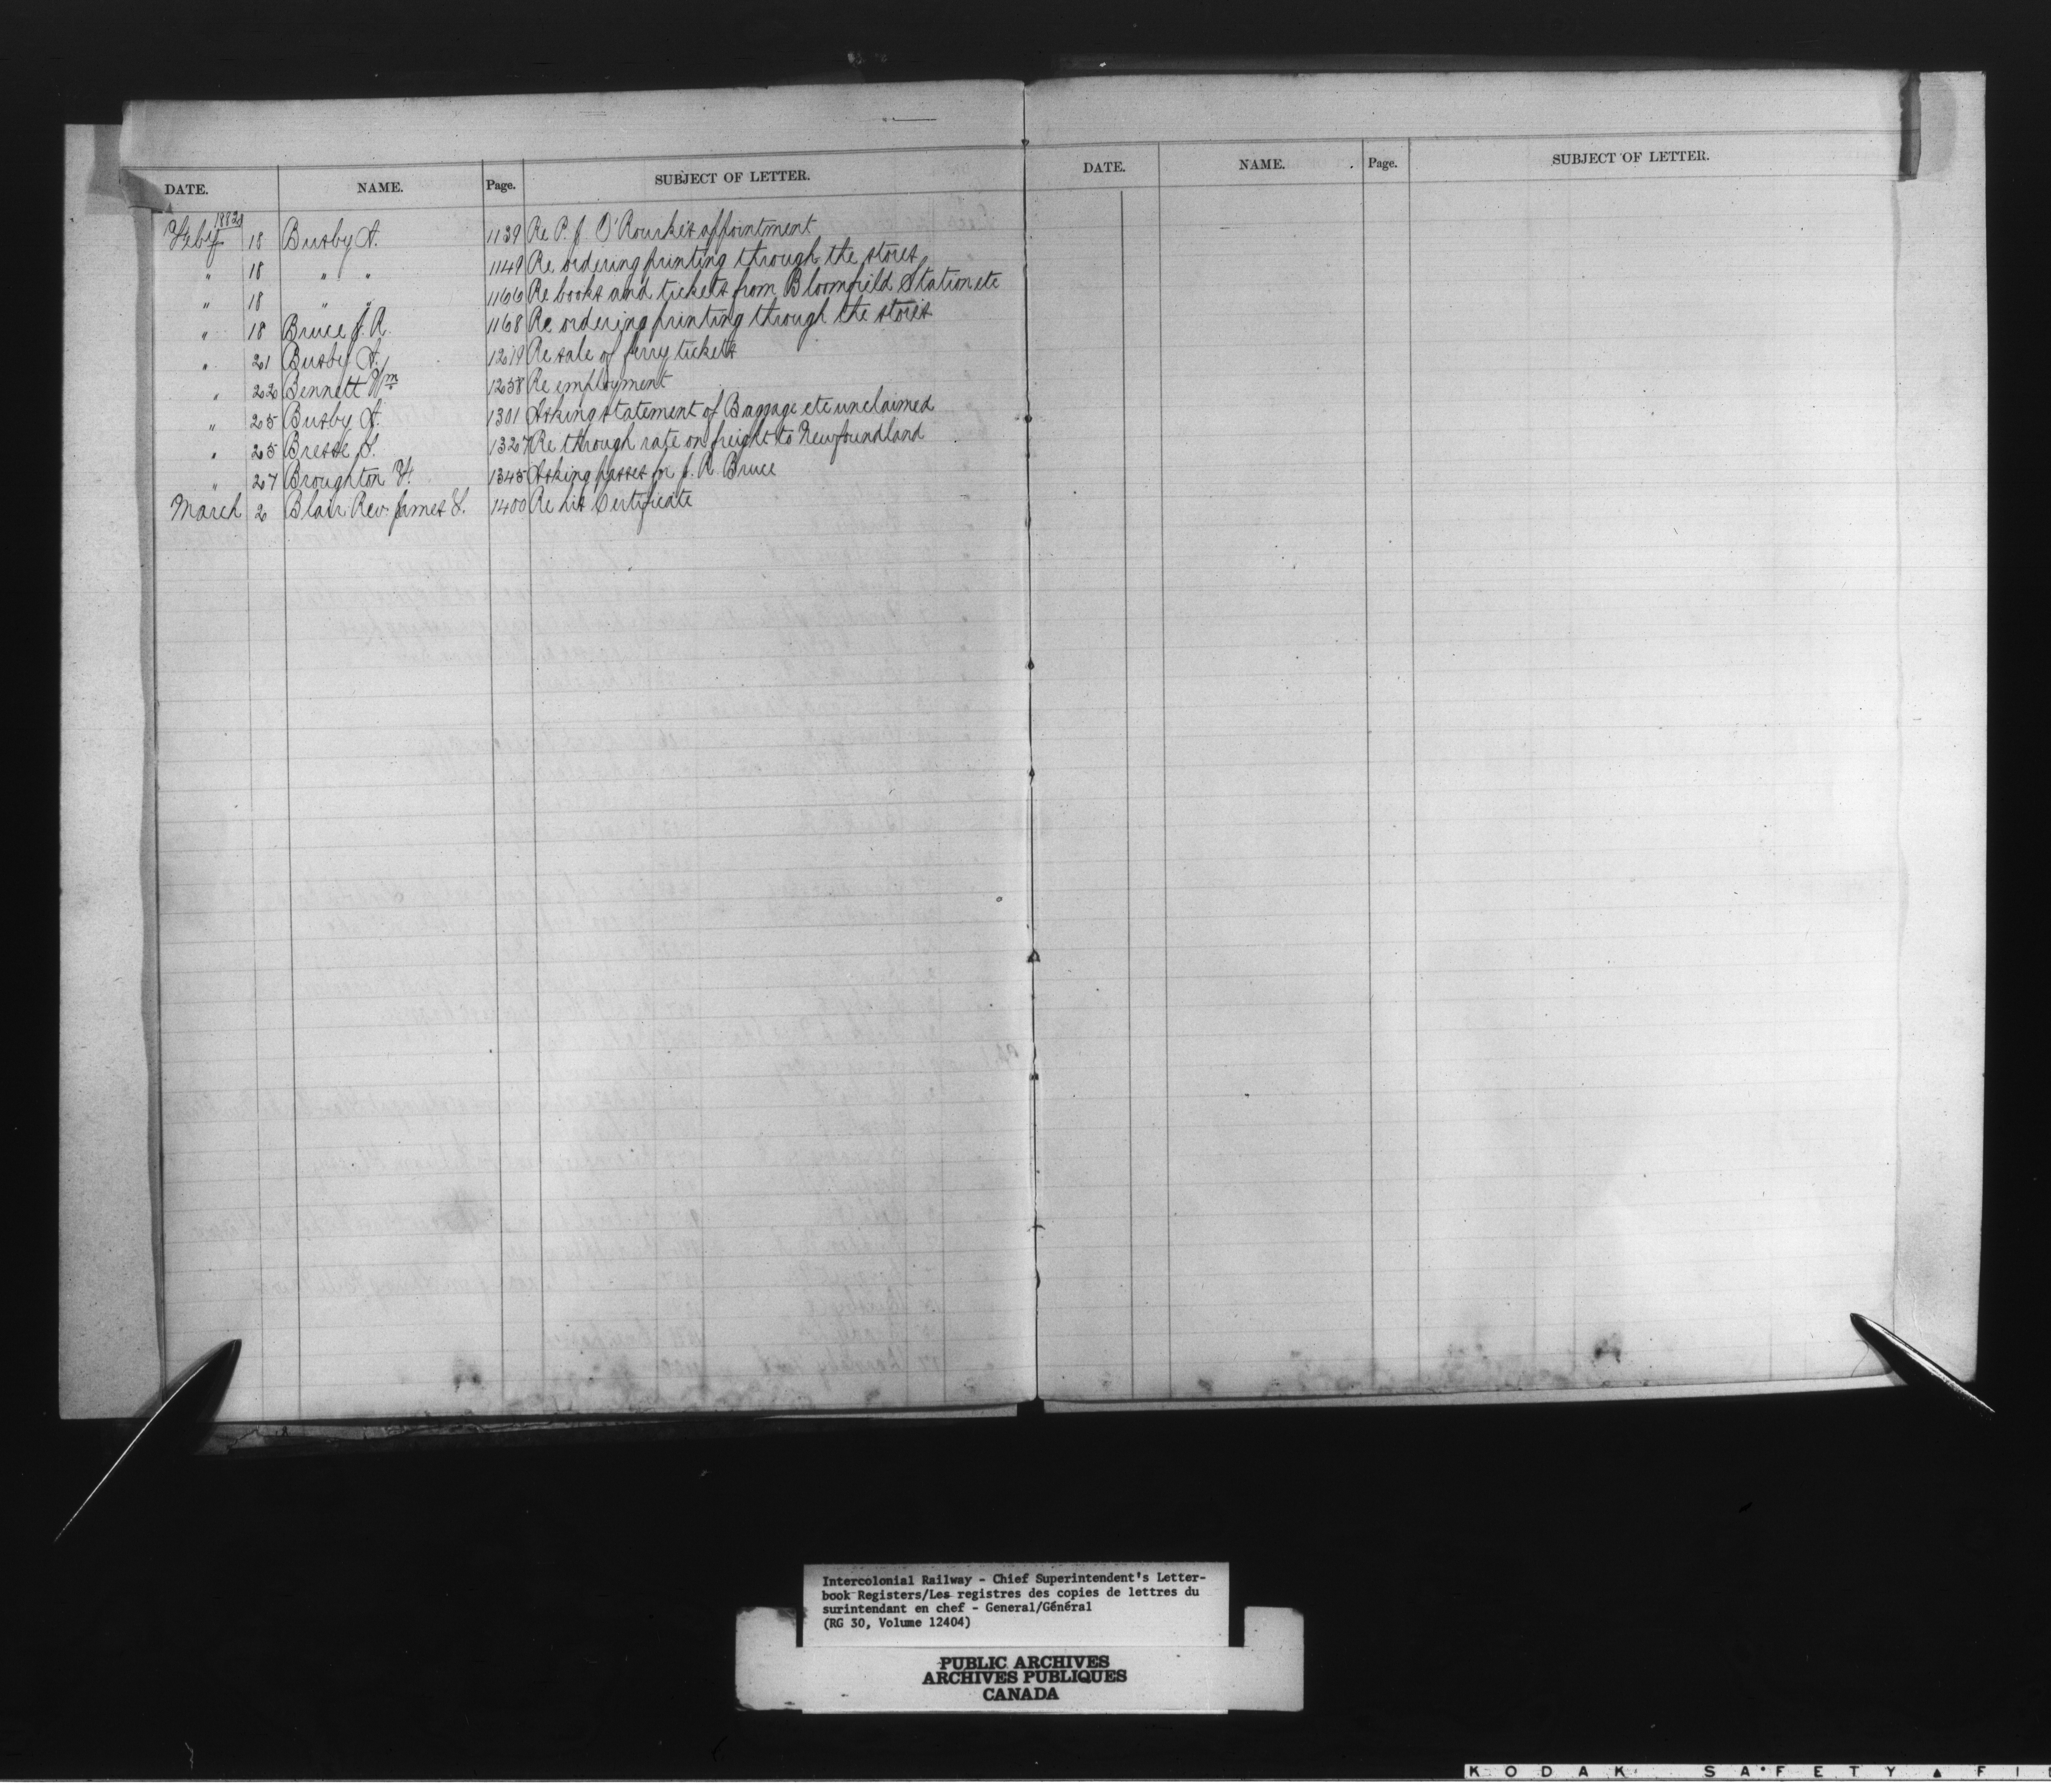 DATE. NAME. Page. SUBJECT OF LETTER.
1882
Feby 18 Busby A. 1139 Re P. J. O'Rourke's appointment
" 18 " " 1149 Re ordering printing through the stores
" 18 " " 1166 Re books and tickets from Bloomfield Station etc
" 18 Bruce J. R. 1168 Re ordering printing through the stores
" 21 Busby A. 1219 Re sale of ferry tickets
" 22 Bennett Wm 1258 Re employment
" 25 Busby A. 1301 Asking statement of Baggage etc unclaimed
" 25 Bresse 1327 Re through rate on freight to Newfoundland
" 27 Broughton F. 1345 Asking passes for J. R. Bruce
March 2 Blair Rev. James 1400 Re his Certificate
DATE. NAME. Page. SUBJECT OF LETTER.
Intercolonial Railway - Chief Superintendent's Letter-
book Registers/Les registres des copies de lettres du
surintendant en chef - General/Général
(RG 30, Volume 12404)
PUBLIC ARCHIVES
ARCHIVES PUBLIQUES
CANADA
KODAK SAFETY ▲ FI